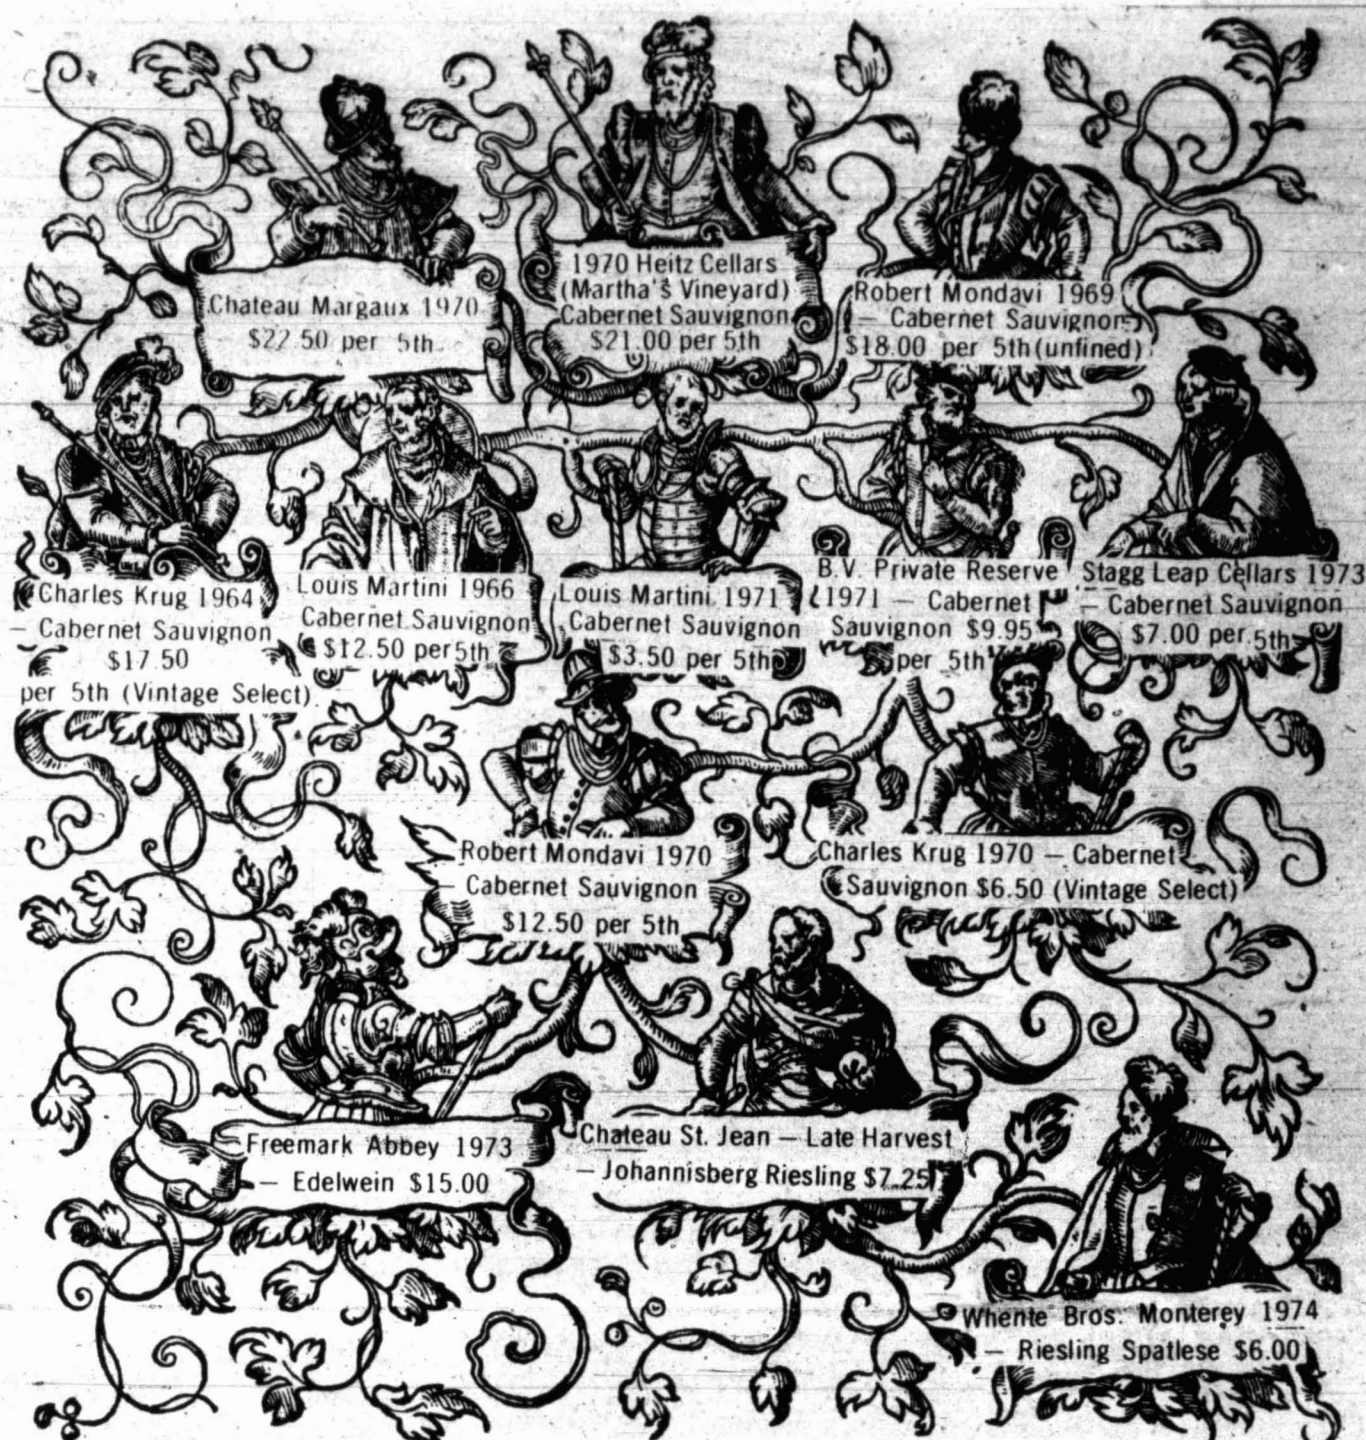 Chateau Margaux 1970
$22.50 per 5th
1970 Heitz Cellars
(Martha's Vineyard)
Cabernet Sauvignon
$21.00 per 5th
Robert Mondavi 1969
— Cabernet Sauvignon
$18.00 per 5th (unfined)
Charles Krug 1964
— Cabernet Sauvignon
$17.50
per 5th (Vintage Select)
Louis Martini 1966
Cabernet Sauvignon
$12.50 per 5th
Louis Martini 1971
Cabernet Sauvignon
$3.50 per 5th
B.V. Private Reserve
1971 — Cabernet
Sauvignon $9.95
per 5th
Stagg Leap Cellars 1973
— Cabernet Sauvignon
$7.00 per 5th
Robert Mondavi 1970
— Cabernet Sauvignon
$12.50 per 5th
Charles Krug 1970 — Cabernet
Sauvignon $6.50 (Vintage Select)
Freemark Abbey 1973
— Edelwein $15.00
Chateau St. Jean — Late Harvest
— Johannisberg Riesling $7.25
Whente Bros. Monterey 1974
— Riesling Spatlese $6.00